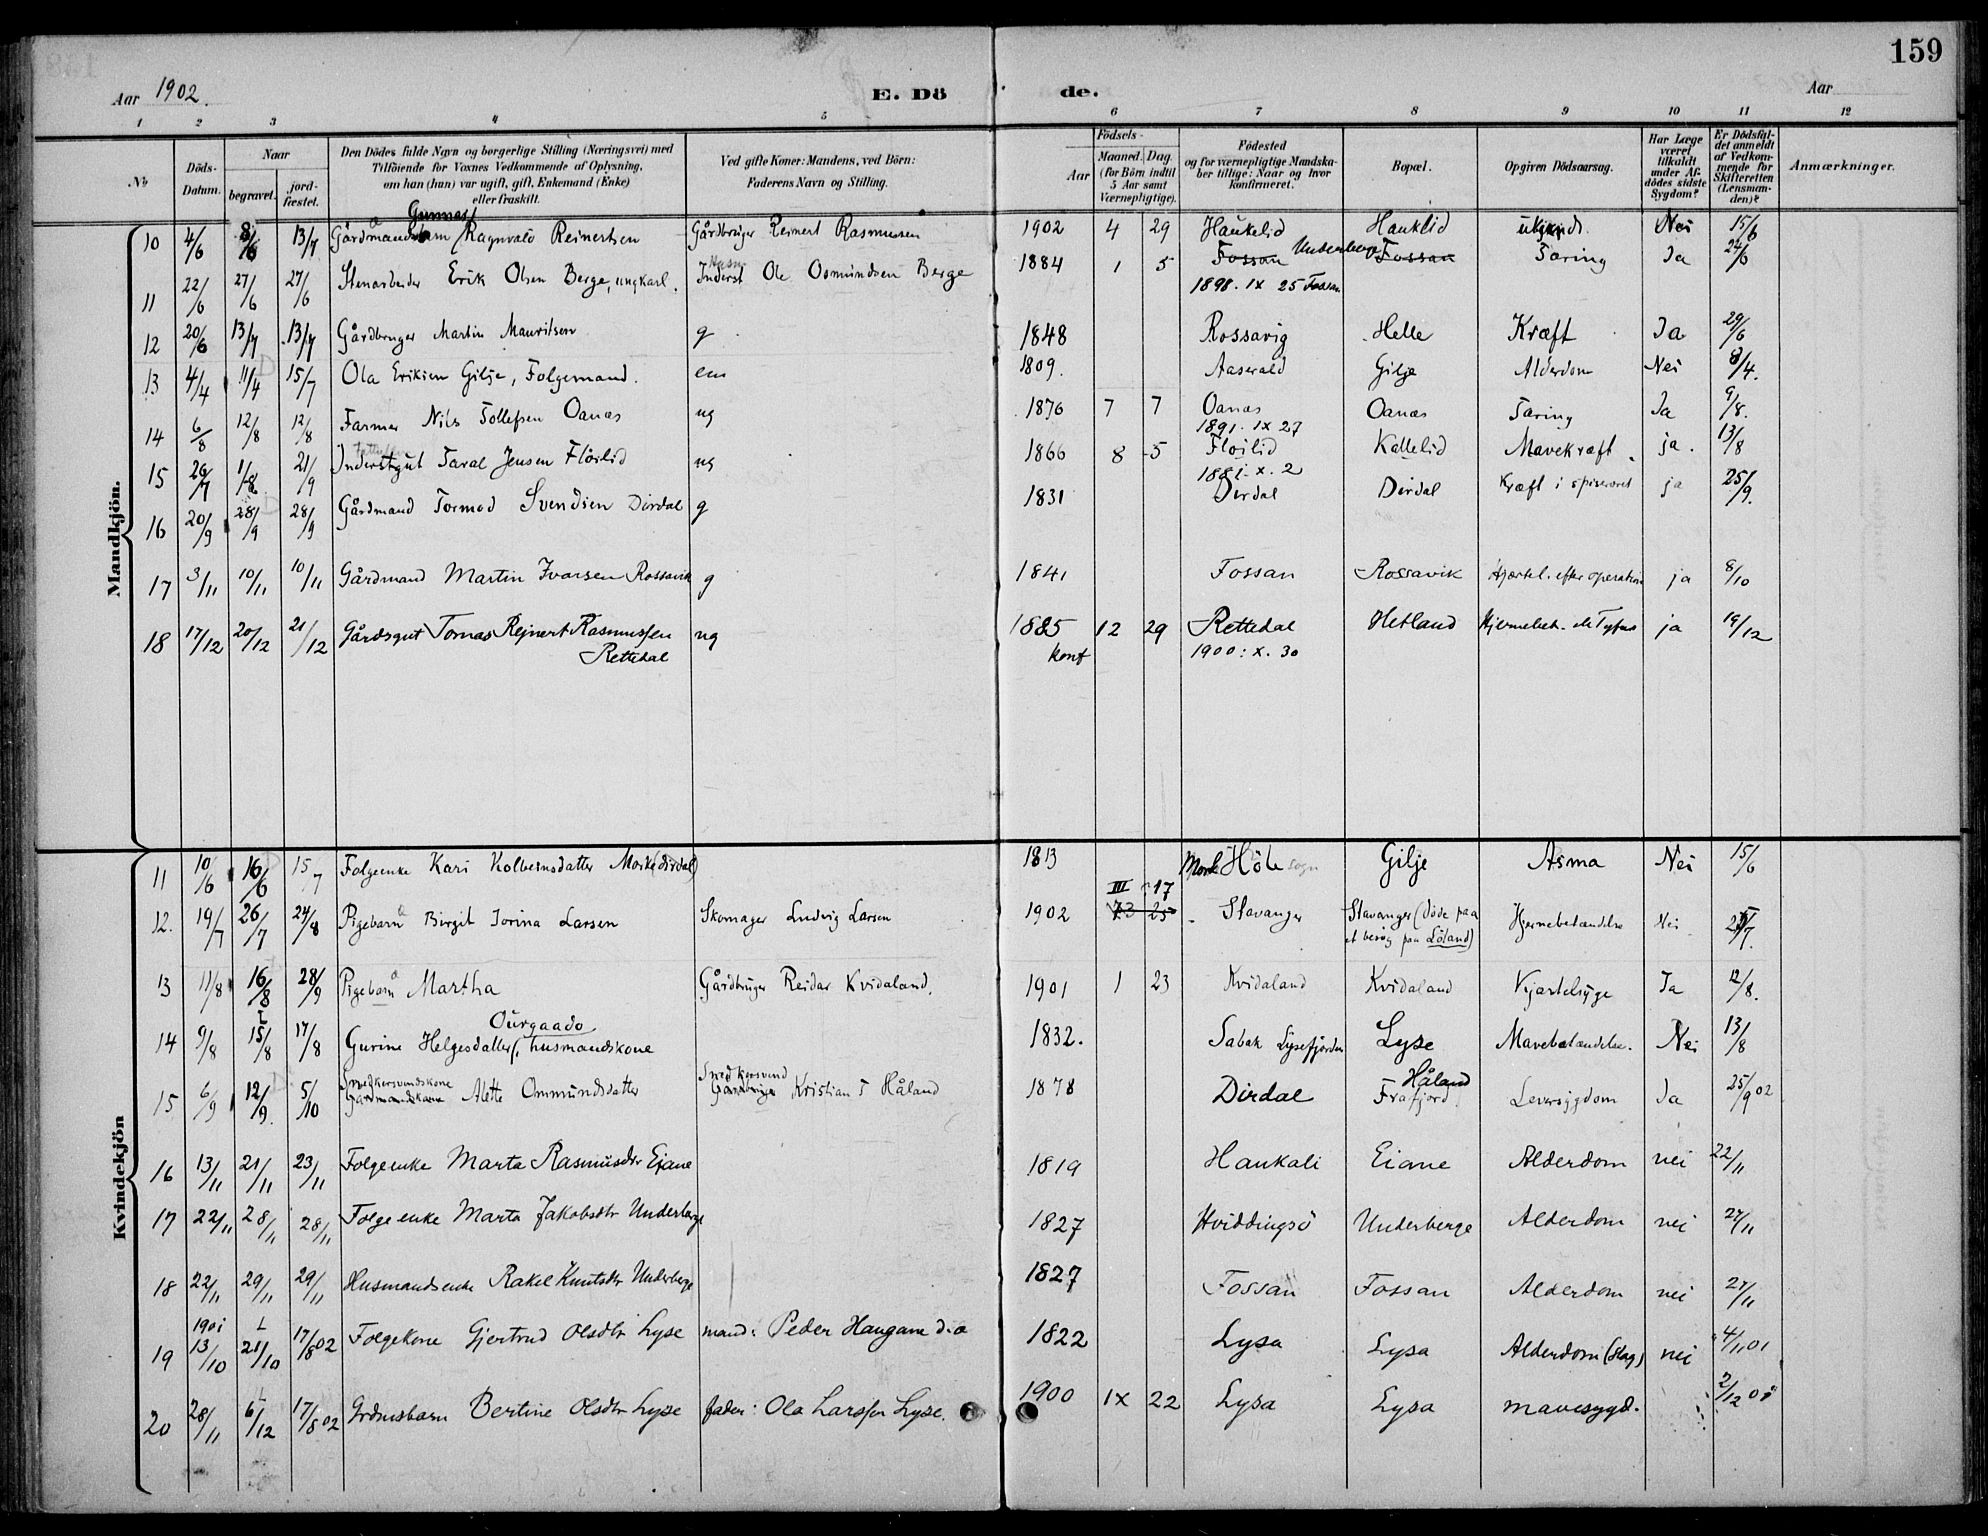 159
Aar 1902.
E. Dö de.
Aar
1 2 3 4 5 6 7 8 9 10 11 12
№
Döds-Datum.
Naar
begravet.
jord-fæstet.
Den Dödes fulde Navn og borgerlige Stilling (Næringsvei) med Tilföiende for Voxnes Vedkommende af Oplysning, om han (hun) var ugift, gift, Enkemand (Enke) eller fraskilt.
Ved gifte Koner: Mandens, ved Börn: Faderens Navn og Stilling.
Födsels-
Aar
Maaned. Dag.
(for Börn indtil 5 Aar samt Værnepligtige).
Födested og for værnepligtige Mandskaber tillige: Naar og hvor konfirmeret.
Bopæl.
Opgiven Dödsaarsag.
Har Læge været tilkaldt under Afdödes sidste Sygdom?
Er Dödsfaldet anmeldt af Vedkommende for Skifteretten (Lensmanden)?
Anmærkninger.
Mandkjön.
10 4/6 8/6 13/7 Gårdmandsbarn Gunnas Ragnvald Reinertsen Gårdbruger Reinert Rasmussen 1902 4 29 Haukelid Hauklid ukjendt Nei 15/6
11 22/6 27/6 27/6 Stenarbeider Erik Olsen Berge, ungkarl. Inderst Ole Osmundsen Berge 1884 1 5 Fossan Underberge Fossan Tæring Ja 24/6
1898. IX 25 Fossan
12 20/6 13/7 13/7 Gårdbruger Martin Mauritsen g 1848 Rossavig Helle Kræft Ja 29/6
13 4/4 11/4 15/7 Ola Eriksen Gilje, Folgemand. em 1809. Aaserald Gilje Alderdom Nei 8/4.
14 6/8 12/8 12/8 Farmer Nils Tollefsen Oanæs ug 1876 7 7 Oanæs Oanæs Tæring Ja 9/8.
1891. IX 27
15 26/7 1/8 21/9 Inderstgut Taral Jensen Flöilid ug 1866 8 5 Flöilid Kallelid Mavekræft ja. 13/8
1881. X. 2
16 20/9 28/9 28/9 Gårdmand Tormod Svendsen Dirdal g 1831 Dirdal Dirdal Kræft i spiserøret ja 25/9.
17 3/11 10/11 10/11 Gårdmand Martin Ivarsen Rossavik g 1841 Fossan Rossavik Hjertel. efter operation ja 8/10
18 17/12 20/12 21/12 Gårdsgut Tomas Rejnert Rasmussen Rettedal ug 1885 12 29 Rettedal Hetland Hjernebet. el. Tyfus ja 19/12
konf 1900: X. 30
Kvindekjön
11 10/6 16/6 15/7 Folgeenke Kari Kolbeinsdatter Morke (dirdal) 1813 Mork Höle sogn Gilje Asma Nei 15/6
12. 19/7 26/7 24/8 Pigebarn Birgit Jorina Larsen Skomager Ludvig Larsen 1902 III 17 Stavanger Stavanger (döde paa et besög paa Löland) Hjernebetændelse Nei
13 11/8 16/8 28/9 Pigebarn Martha Gårdbruger Reidar Kvidaland. 1901 1 23 Kvidaland Kvidaland Hjertelsyge Ja 12/8.
14 9/8 15/8 17/8 Gurine Helgesdatter, Ourgaado husmandskone 1832. Sabak Lysefjorden Lyse Mavebetændelse. Nei 13/8
15 6/9 12/9. 5/10 Snedkersvendskone Gårdmandskone Alette Ommundsdatter Snedkersvend Gårdbruger Kristian T Håland 1878 Dirdal Håland Frafjord. Leversygdom Ja 25/9 02
16 13/11 21/11 23/11 Folgeenke Marta Rasmusdtr Eiane 1819 Haukali Eiane Alderdom nei 22/11
17 22/11 28/11 28/11 Folgeenke Marta Jakobsdtr Underberge 1827 Hviddingsö Underberge Alderdom nei 27/11
18 22/11 29/11 29/11 Husmandsenke Rakel Knutsdtr Underberge 1827 Fossan Fossan Alderdom nei 27/11
19 1901 13/10 21/10 17/8 02 Folgekone Gjertrud Olsdtr Lyse mand: Peder Haugane d.o 1822 Lysa Lysa Alderdom (slag) nei 4/11 01
20 28/11 6/12 17/8 02 Grdmsbarn Bertine Olsdtr Lyse fader: Ola Larssen Lyse. 1900 IX 22 Lysa Lysa mavesygd. 2/12 01